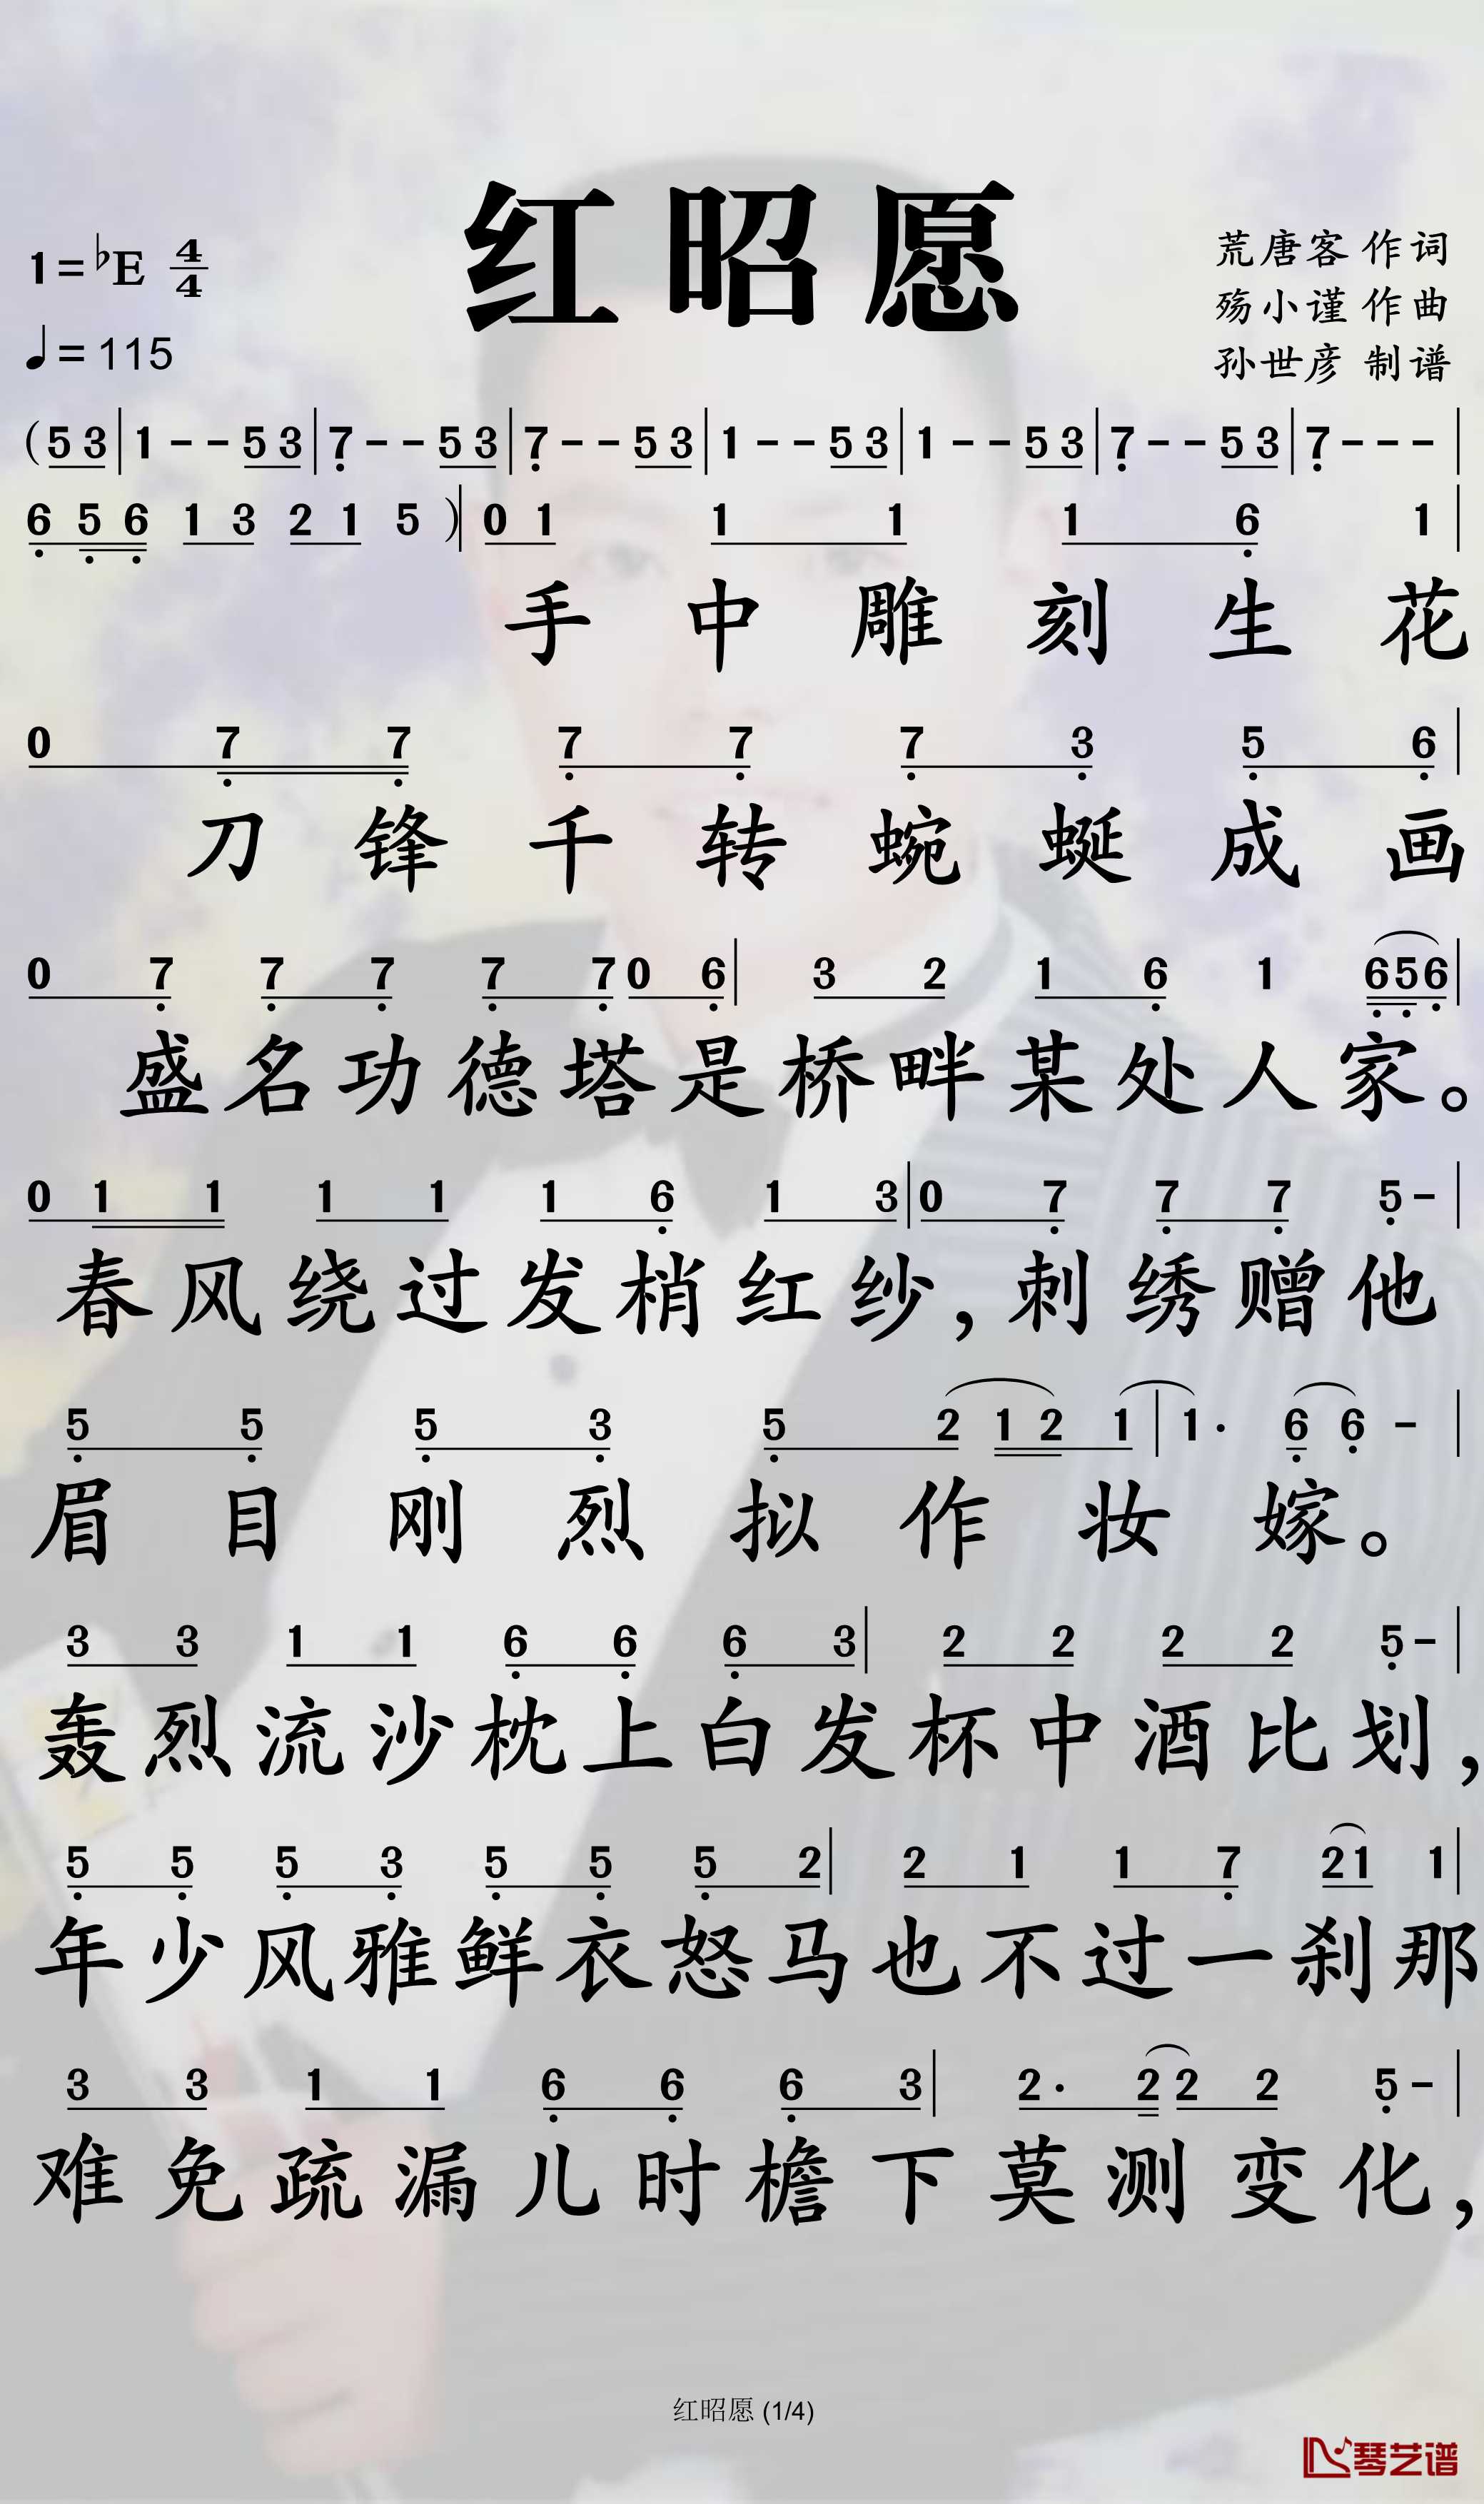 红昭愿
1=♭E 4/4
♩=115
荒唐客 作词
殇小谨 作曲
孙世彦 制谱
(5 3 | 1 - - 5 3 | 7 - - 5 3 | 7 - - 5 3 | 1 - - 5 3 | 1 - - 5 3 | 7 - - 5 3 | 7 - - - |
6 5 6 1 3 2 1 5 ) | 0 1 1 1 1 6 1 |
手中雕刻生花
0 7 7 7 7 7 3 5 6 |
刀锋千转蜿蜒成画
0 7 7 7 7 7 0 6 | 3 2 1 6 1 6 5 6 |
盛名功德塔是桥畔某处人家。
0 1 1 1 1 1 6 1 3 | 0 7 7 7 5 - |
春风绕过发梢红纱，刺绣赠他
5 5 5 3 5 2 1 2 1 | 1 · 6 6 - |
眉目刚烈拟作妆嫁。
3 3 1 1 6 6 6 3 | 2 2 2 2 5 - |
轰烈流沙枕上白发杯中酒比划，
5 5 5 3 5 5 5 2 | 2 1 1 7 2 1 1 |
年少风雅鲜衣怒马也不过一刹那
3 3 1 1 6 6 6 3 | 2 · 2 2 2 5 - |
难免疏漏儿时檐下莫测变化，
红昭愿 (1/4)
琴艺谱